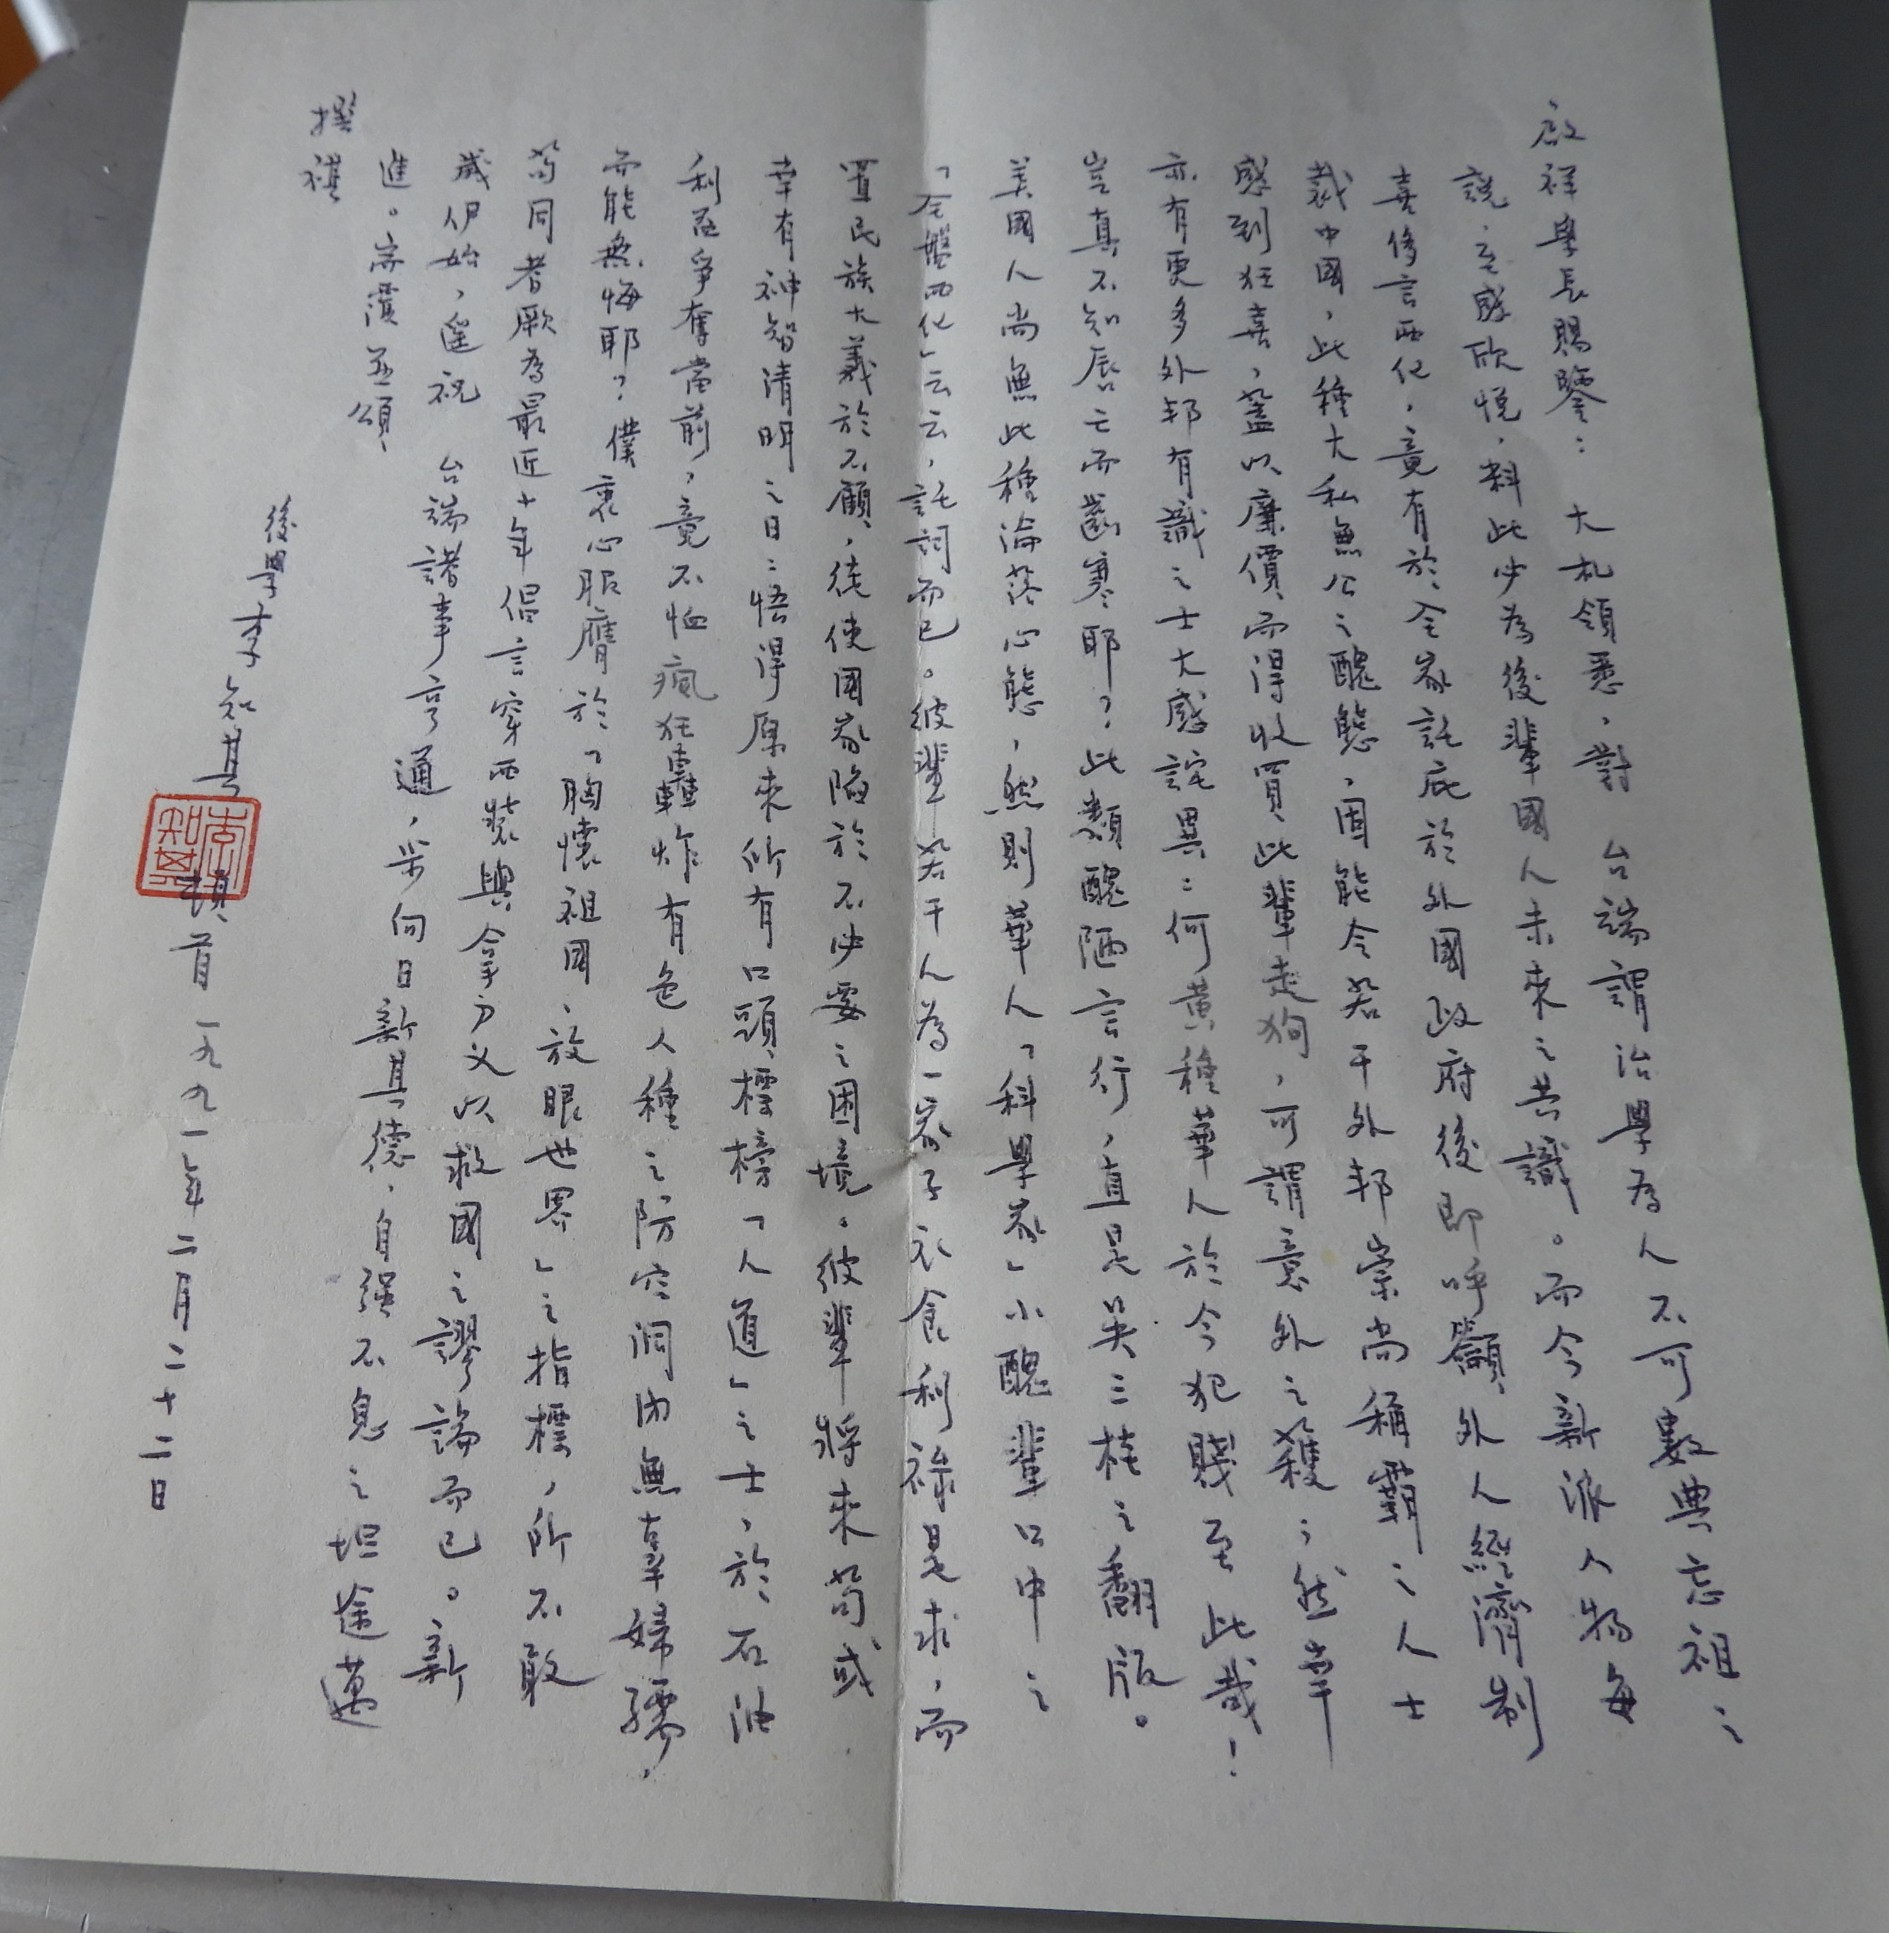 啟祥學長賜鑒：大札領悉，對 台端謂治學為人不可數典忘祖之
說，至感欣悅，料此必為後輩國人未來之共識。而今新派人物每
喜侈言西化，竟有於全家託庇於外國政府後即呼籲外人經濟制
裁中國，此種大私無公之醜態，固能令若干外邦崇尚稱霸之人士
感到狂喜，蓋以廉價而得收買此輩走狗，可謂意外之獲；然幸
亦有更多外邦有識之士大感詫異：何黃種華人於今犯賤至此哉！
豈真不知唇亡而齒寒耶？此類醜陋言行，直是吳三桂之翻版。
美國人尚無此種淪落心態，然則華人「科學家」小醜輩口中之
「全盤西化」云云，託詞而已。彼輩若干人為一家子衣食利祿是求，而
置民族大義於不顧，徒使國家陷於不必要之困境。彼輩將來苟或
幸有神智清明之日：悟得原來所有口頭標榜「人道」之士，於石油
利益爭奪當前，竟不恤瘋狂轟炸有色人種之防空洞內無辜婦孺，
而能無悔耶？僕衷心服膺於「胸懷祖國、放眼世界」之指標，所不敢
苟同者厥為最近十年倡言穿西裝與拿刀叉以救國之謬論而已。新
歲伊始，遙祝 台端諸事亨通，采向日新其德，自强不息之坦途邁
進。耑瀆並頌
撰祺
後學 李知其
頓首 一九九一年二月二十二日
李知其